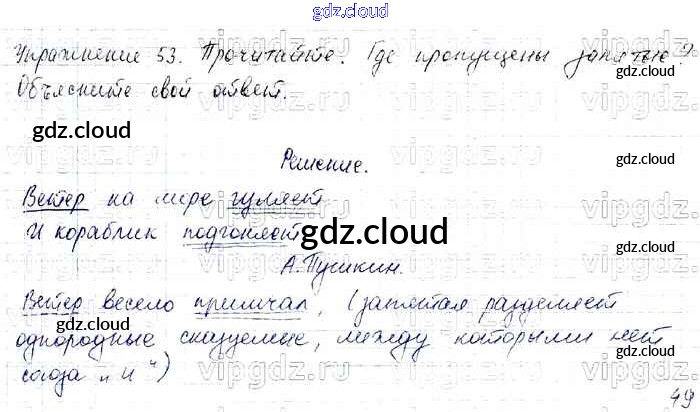 gdz.cloud
Упражнение 53. Прочитайте. Где пропущены запятые?
Объясните свой ответ.
gdz.cloud
gdz.cloud
Решение.
gdz.cloud
Ветер на море гуляет
И кораблик подгоняет
gdz.cloud
gdz.cloud
А.Пушкин.
Ветер весело примчал, (запятая разделяет
gdz.cloud
gdz.cloud
однородные сказуемые, между которыми нет
союза „и“)
49